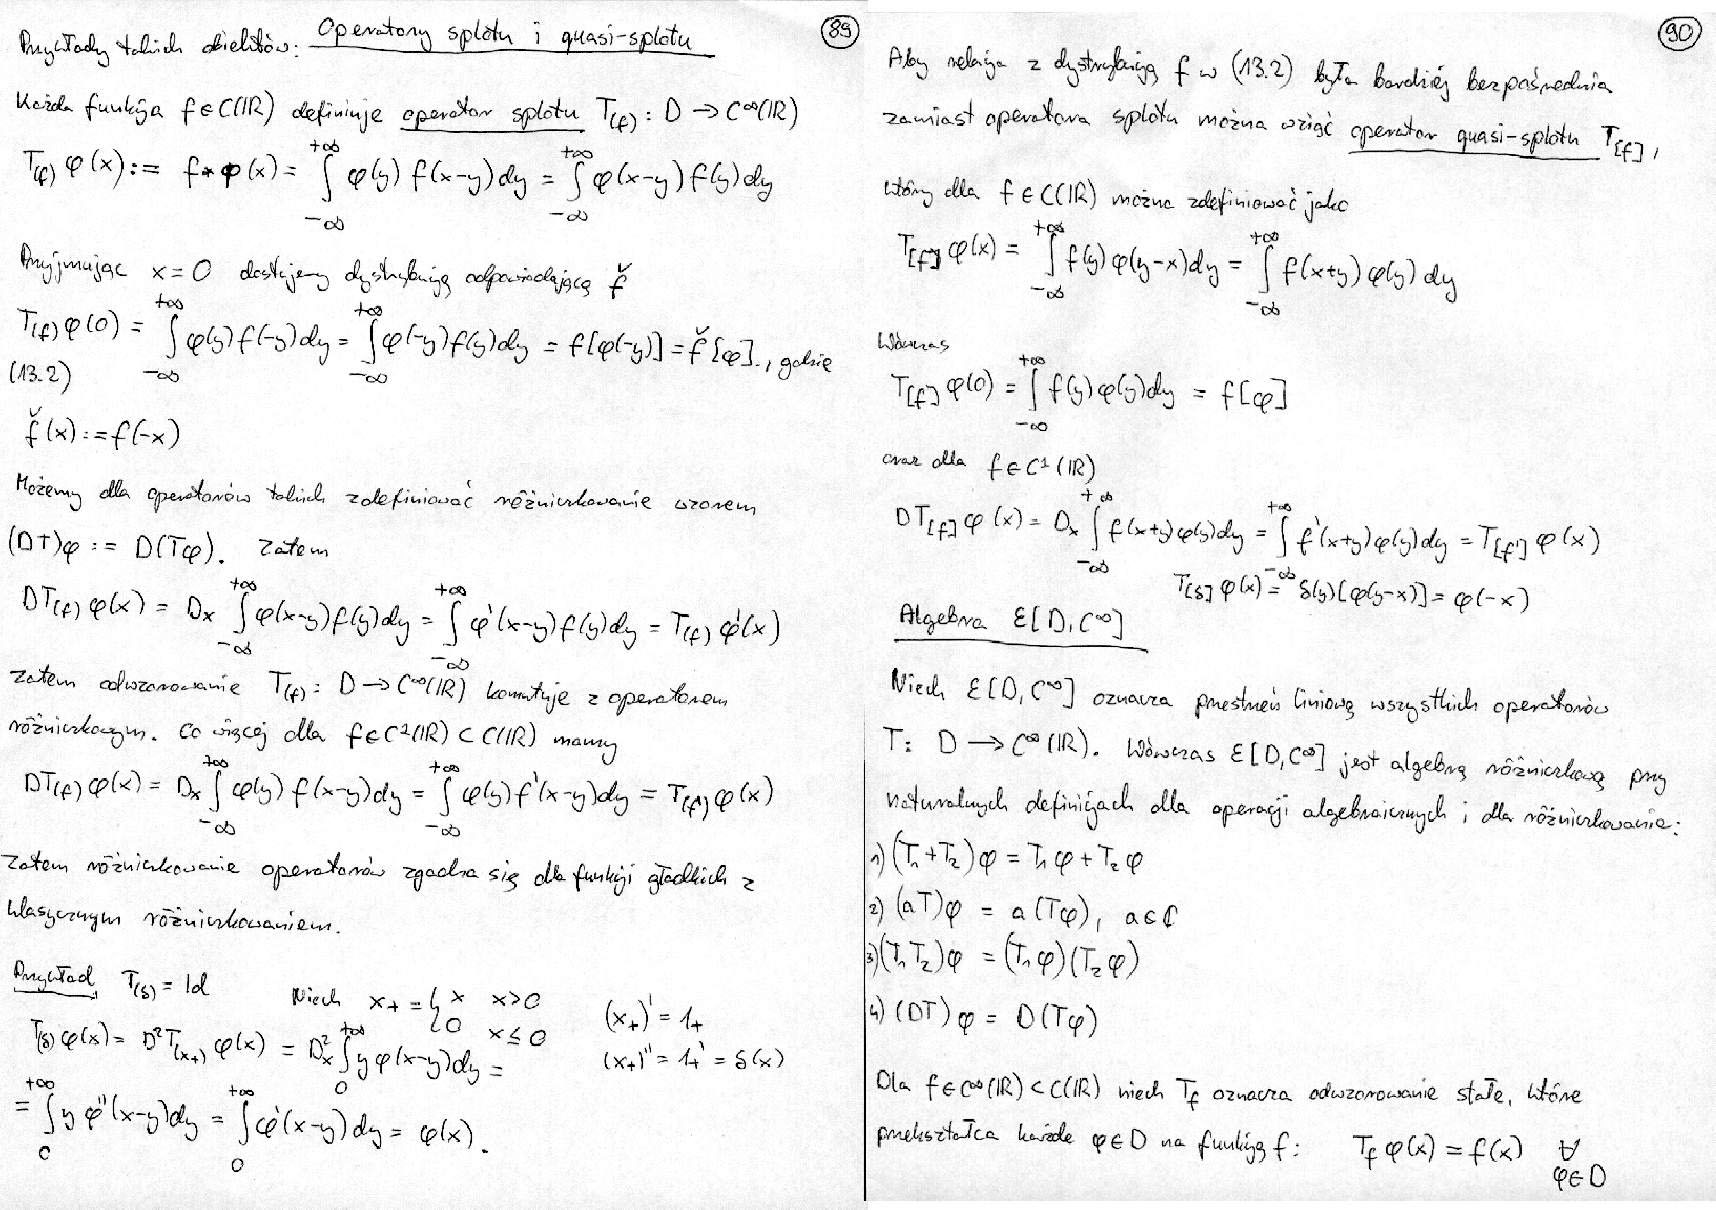 Przykłady takich obiektów: Operatory splotu i quasi-splotu
89
Każda funkcja f∈C(ℝ) definiuje operator splotu T₍f₎ : D → C^∞(ℝ)
T₍f₎ φ(x) := f∗φ(x) = ∫_{-∞}^{+∞} φ(y) f(x-y)dy = ∫_{-∞}^{+∞} φ(x-y) f(y)dy
Przyjmując x=0 dostajemy dystrybucję odpowiadającą f̌
T₍f₎φ(0) = ∫_{-∞}^{+∞} φ(y)f(-y)dy = ∫_{-∞}^{+∞} φ(-y)f(y)dy = f[φ(-y)] = f̌[φ]., gdzie
(13.2)
f̌(x) := f(-x)
Możemy dla operatorów takich zdefiniować różniczkowanie wzorem
(DT)φ := D(Tφ). Zatem
DT₍f₎φ(x) = D_x ∫_{-∞}^{+∞} φ(x-y)f(y)dy = ∫_{-∞}^{+∞} φ'(x-y)f(y)dy = T₍f₎ φ'(x)
Zatem odwzorowanie T₍f₎ : D → C^∞(ℝ) komutuje z operatorem
różniczkowym. Co więcej dla f∈C¹(ℝ) ⊂ C(ℝ) mamy
DT₍f₎φ(x) = D_x ∫_{-∞}^{+∞} φ(y) f(x-y)dy = ∫_{-∞}^{+∞} φ(y) f'(x-y)dy = T₍f'₎ φ(x)
Zatem różniczkowanie operatorów zgadza się dla funkcji gładkich z
klasycznym różniczkowaniem.
Przykład T₍δ₎ = Id Niech x₊ = { x x>0 (x₊)' = 1₊
0 x≤0
T₍δ₎φ(x) = D²T₍x₊₎ φ(x) = D²_x ∫_0^{+∞} y φ(x-y)dy = (x₊)'' = 1₊' = δ(x)
= ∫_0^{+∞} y φ''(x-y)dy = ∫_0^{+∞} φ'(x-y)dy = φ(x).
90
Aby relacja z dystrybucją f w (13.2) była bardziej bezpośrednia
zamiast operatora splotu można wziąć operator quasi-splotu T_[f],
który dla f∈C(ℝ) można zdefiniować jako
T_[f] φ(x) = ∫_{-∞}^{+∞} f(y)φ(y-x)dy = ∫_{-∞}^{+∞} f(x+y) φ(y) dy
Wówczas
T_[f] φ(0) = ∫_{-∞}^{+∞} f(y)φ(y)dy = f[φ]
oraz dla f∈C¹(ℝ)
DT_[f] φ(x) = D_x ∫_{-∞}^{+∞} f(x+y)φ(y)dy = ∫_{-∞}^{+∞} f'(x+y)φ(y)dy = T_[f'] φ(x)
T_[δ] φ(x) = δ(y)[φ(y-x)] = φ(-x)
Algebra ℰ[D, C^∞]
Niech ℰ[D, C^∞] oznacza przestrzeń liniową wszystkich operatorów
T: D → C^∞(ℝ). Wówczas ℰ[D, C^∞] jest algebrą różniczkową przy
naturalnych definicjach dla operacji algebraicznych i dla różniczkowania:
1) (T₁+T₂)φ = T₁φ + T₂φ
2) (aT)φ = a(Tφ), a∈ℂ
3) (T₁T₂)φ = (T₁φ)(T₂φ)
4) (DT)φ = D(Tφ)
Dla f∈C^∞(ℝ) ⊂ C(ℝ) niech T_f oznacza odwzorowanie stałe, które
przekształca każde φ∈D na funkcję f: T_f φ(x) = f(x) ∀
φ∈D